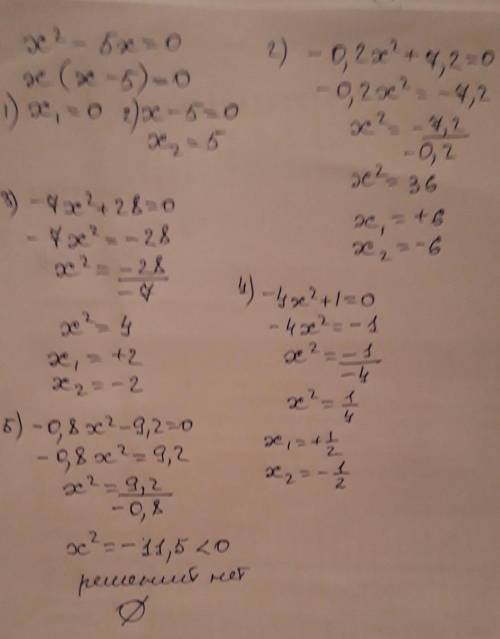 x² - 5x = 0
x(x - 5) = 0
1) x₁ = 0 2) x - 5 = 0
x₂ = 5
2) -0,2x² + 7,2 = 0
-0,2x² = -7,2
x² = -7,2/-0,2
x² = 36
x₁ = +6
x₂ = -6
3) -7x² + 28 = 0
-7x² = -28
x² = -28/-7
x² = 4
x₁ = +2
x₂ = -2
4) -4x² + 1 = 0
-4x² = -1
x² = -1/-4
x² = 1/4
x₁ = +1/2
x₂ = -1/2
5) -0,8x² - 9,2 = 0
-0,8x² = 9,2
x² = 9,2/-0,8
x² = -11,5 < 0
решений нет
∅